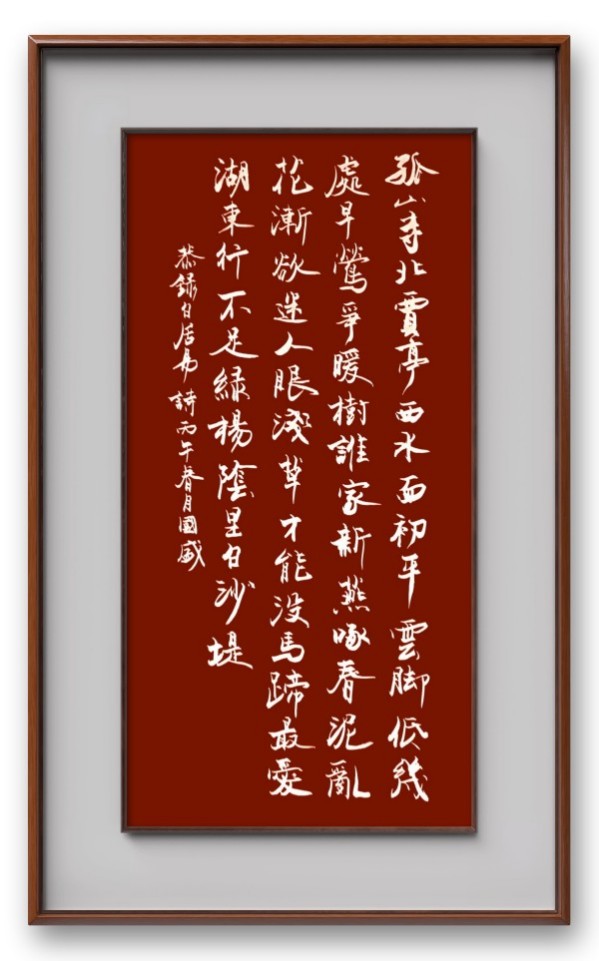 孤山寺北賈亭西水面初平雲脚低幾
處早鶯爭暖樹誰家新燕啄春泥亂
花漸欲迷人眼淺草才能沒馬蹄最愛
湖東行不足綠楊陰里白沙堤
恭録白居易詩丙午春月國威